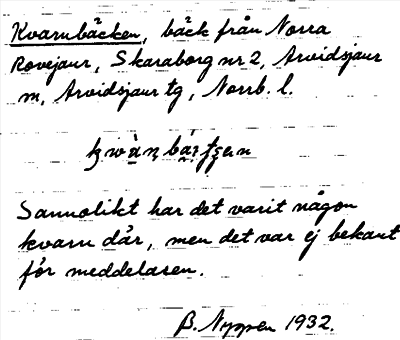 Kvarnbäcken, bäck från Norra
Rovejaur, Skaraborg nr 2, Arvidsjaur
sn, Arvidsjaur tg, Norrb. l.
Sannolikt har det varit någon
kvarn där, men det var ej bekant
för meddelaren.
B. Nyppen 1932.